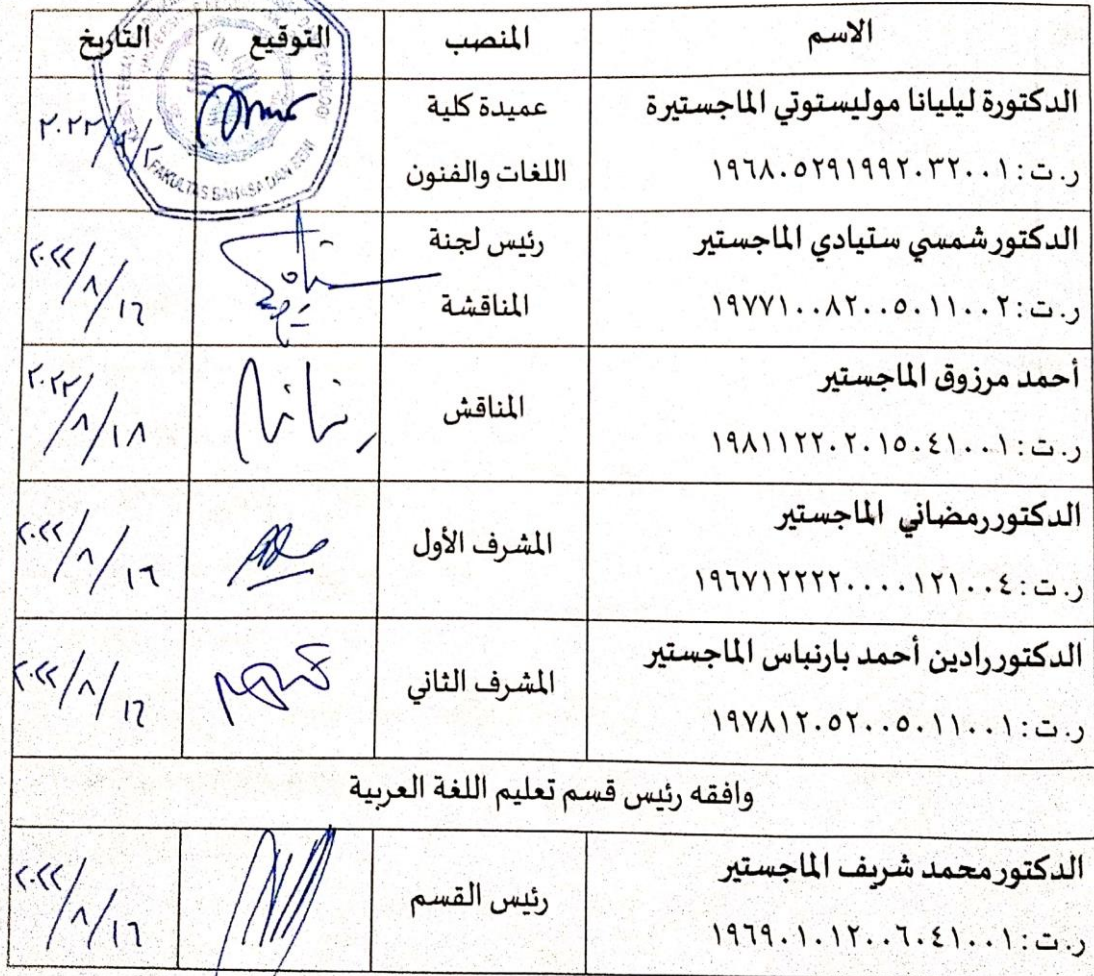 الاسم المنصب التوقيع التاريخ
الدكتورة ليليانا موليستوتي الماجستيرة
ر. ت: ١٩٦٨٠٥٢٩١٩٩٢٠٣٢٠٠١
عميدة كلية
اللغات والفنون
FAKULTAS BAHASA DAN SENI
الدكتورشمسي ستيادي الماجستير
ر. ت: ١٩٧٧١٠٠٨٢٠٠٥٠١١٠٠٢
رئيس لجنة
المناقشة
٢٠٢٢/٨/١٦
أحمد مرزوق الماجستير
ر. ت: ١٩٨١١٢٢٠٢٠١٥٠٤١٠٠١
المناقش
٢٠٢٢/٨/١٨
الدكتوررمضاني الماجستير
ر. ت: ١٩٦٧١٢٢٢٢٠٠٠٠١٢١٠٠٤
المشرف الأول
٢٠٢٢/٨/١٦
الدكتوررادين أحمد بارنباس الماجستير
ر. ت: ١٩٧٨١٢٠٥٢٠٠٥٠١١٠٠١
المشرف الثاني
٢٠٢٢/٨/١٦
وافقه رئيس قسم تعليم اللغة العربية
الدكتورمحمد شريف الماجستير
ر. ت: ١٩٦٩٠١٠١٢٠٠٦٠٤١٠٠١
رئيس القسم
٢٠٢٢/٨/١٦